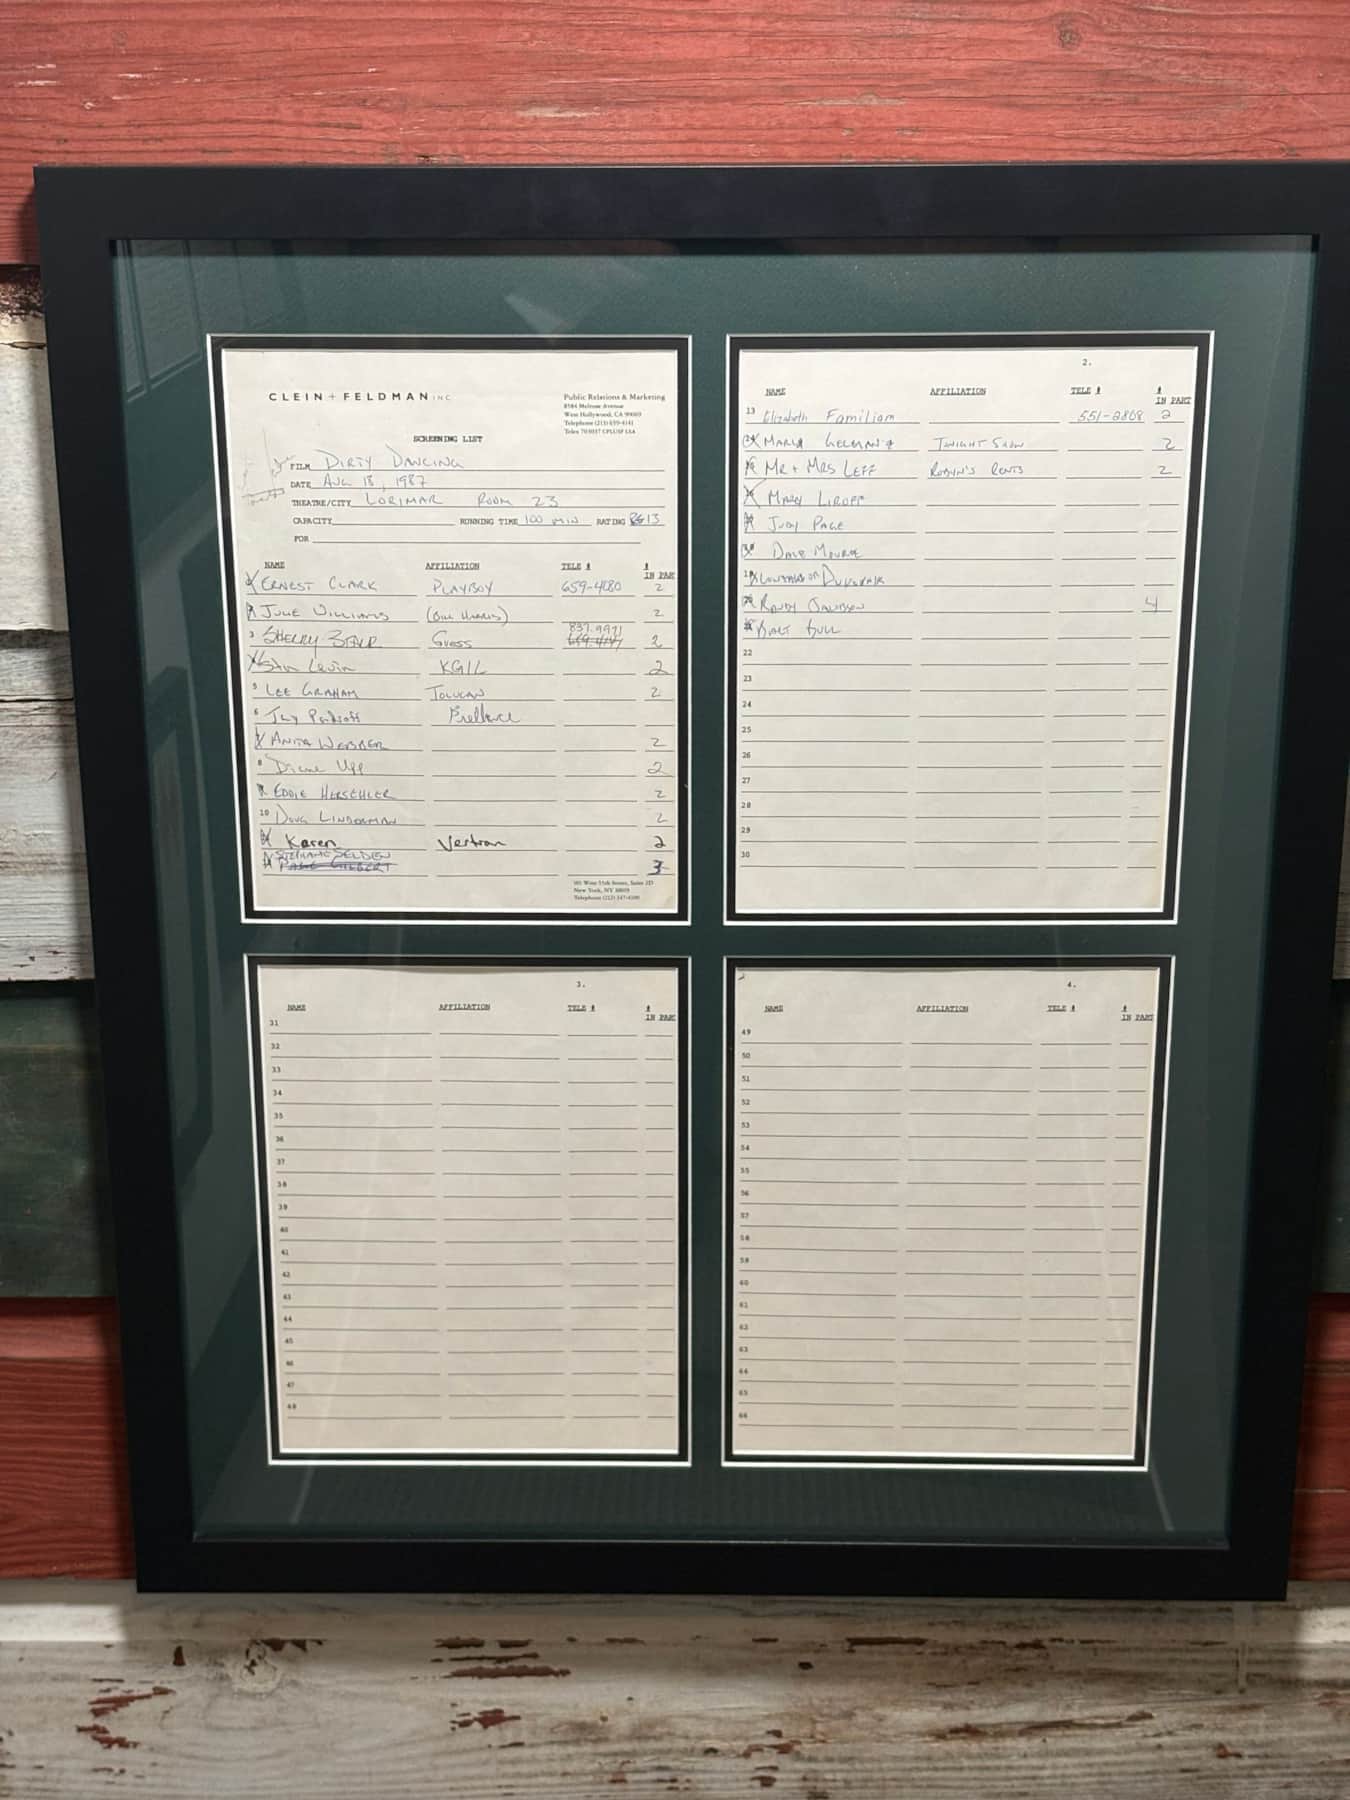 CLEIN + FELDMAN INC
Public Relations & Marketing
8584 Melrose Avenue
West Hollywood, CA 90069
Telephone (213) 659-4141
Telex 703037 CPLUSF LSA
SCREENING LIST
FILM DIRTY DANCING
DATE AUG 18, 1987
THEATRE/CITY LORIMAR ROOM 23
CAPACITY RUNNING TIME 100 MIN RATING PG13
FOR
NAME AFFILIATION TELE # # IN PAR
ERNEST CLARK PLAYBOY 659-4080 2
JULIE WILLIAMS (BILL HARRIS) 2
3 SHERRY GUESS 837.9971 2
Stan Levin KGIL 2
5 LEE GRAHAM TOLUCAN 2
6 Jay Freelance
ANITA WEBBER 2
8 Diane Upp 2
EDDIE HERSCHLER 2
10 DOUG LINDERMAN 2
Karen Vestron 2
STEPHANIE SELDEN
PAGE GILBERT 3
101 West 55th Street, Suite 2D
New York, NY 10019
Telephone (212) 247-4100
2.
NAME AFFILIATION TELE # # IN PART
13 Elizabeth Familian 551-2808 2
MARLA TONIGHT SHOW 2
MR + MRS LEFF ROBYN'S RENTS 2
MARY
JUDY PAGE
DALE

RANDY DAVIDSON 4
BULL
22
23
24
25
26
27
28
29
30
3.
NAME AFFILIATION TELE # # IN PAR
31
32
33
34
35
36
37
38
39
40
41
42
43
44
45
46
47
48
4.
NAME AFFILIATION TELE # # IN PART
49
50
51
52
53
54
55
56
57
58
59
60
61
62
63
64
65
66